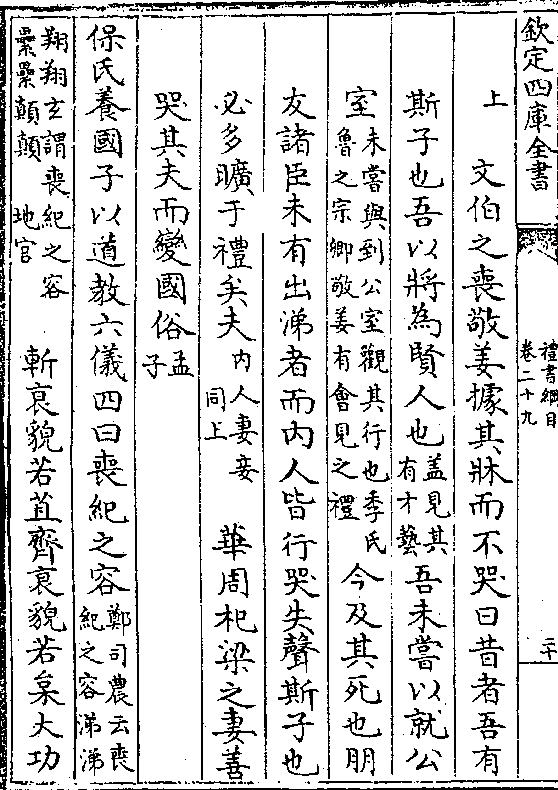 欽定四庫全書
禮書綱目
卷二十九
二十
上　文伯之喪敬姜據其牀而不哭曰昔者吾有
斯子也吾以將為賢人也盖見其有才藝吾未嘗以就公
室未嘗與到公室觀其行也季氏魯之宗卿敬姜有會見之禮今及其死也朋
友諸臣未有出涕者而內人皆行哭失聲斯子也
必多曠于禮矣夫內人妻妾同上　華周杞梁之妻善
哭其夫而變國俗孟子
保氏養國子以道教六儀四曰喪紀之容鄭司農云喪紀之容涕涕
翔翔玄謂喪紀之容纍纍顛顛　地官　斬衰貌若苴齊衰貌若枲大功